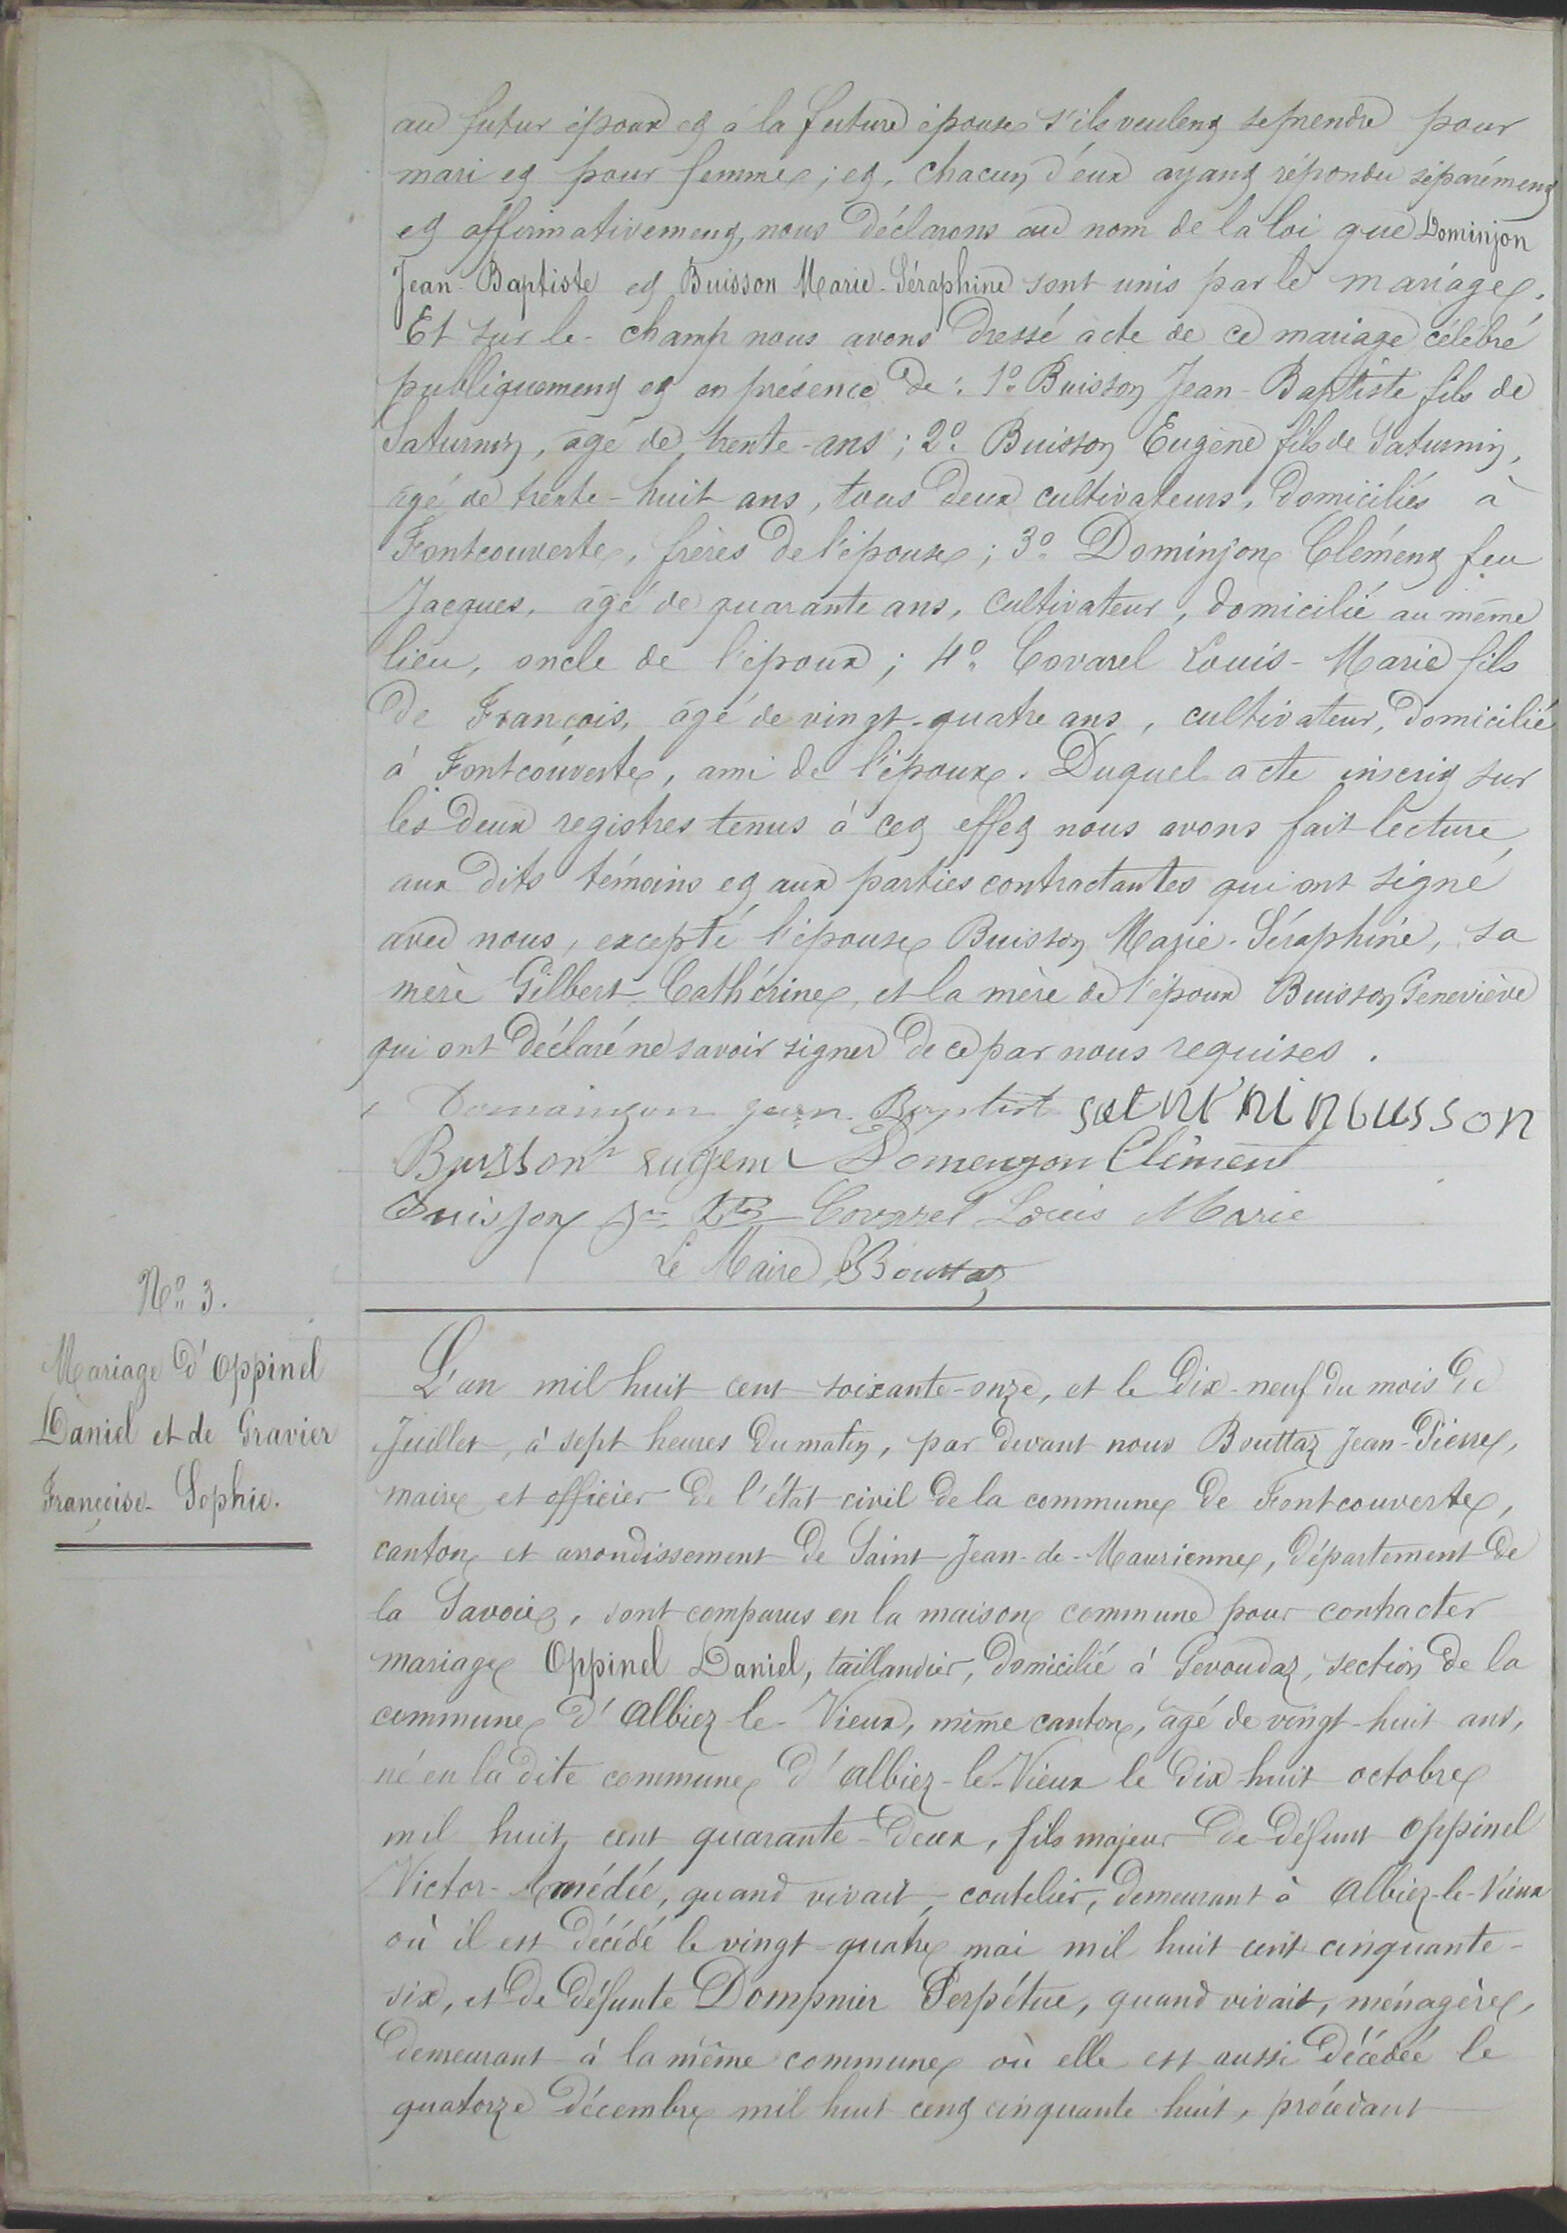 au futur époux et à la future épouse s'ils veulent se prendre pour
mari et pour femme ; et, chacun d'eux ayant répondu séparément
et affirmativement, nous déclarons au nom de la loi que Dominjon
Jean-Baptiste et Buisson Marie-Séraphine sont unis par le mariage.
Et sur-le-champ nous avons dressé acte de ce mariage célébré
publiquement et en présence de : 1o Buisson Jean-Baptiste fils de
Saturnin, âgé de trente-ans ; 2o Buisson Eugène fils de Saturnin,
âgé de trente-huit ans, tous deux cultivateurs, domiciliés à
Fontcouverte, frères de l'épouse ; 3o Dominjon Clément feu
Jacques, âgé de quarante ans, cultivateur, domicilié au même
lieu, oncle de l'époux ; 4o Covarel Louis-Marie fils
de François, âgé de vingt-quatre ans, cultivateur, domicilié
à Fontcouverte, ami de l'époux. Duquel acte inscrit sur
les deux registres tenus à cet effet nous avons fait lecture
aux dits témoins et aux parties contractantes qui ont signé
avec nous, excepté l'épouse Buisson Marie-Séraphine, sa
mère Gilbert Cathérine, et la mère de l'époux Buisson Geneviève
qui ont déclaré ne savoir signer de ce par nous requises.
Domainjon jean Baptist saturnin buisson
Buisson eugene Domenjon Clément
Buisson Jn Bte Covarel Louis Marie
Le Maire, Bouttaz
No 3.
Mariage d'Oppinel
Daniel et de Gravier
Françoise-Sophie.
L'an mil huit cent soixante-onze, et le dix-neuf du mois de
Juillet, à sept heures du matin, par devant nous Bouttaz Jean-Pierre,
maire et officier de l'état civil de la commune de Fontcouverte,
canton et arrondissement de Saint-Jean-de-Maurienne, département de
la Savoie, sont comparus en la maison commune pour contracter
mariage Oppinel Daniel, taillandier, domicilié à Gevoudaz, section de la
commune d'Albiez-le-Vieux, même canton, âgé de vingt-huit ans,
né en la dite commune d'Albiez-le-Vieux le dix-huit octobre
mil huit cent quarante-deux, fils majeur de défunt Oppinel
Victor-Amédée, quand vivait, coutelier, demeurant à Albiez-le-Vieux
où il est décédé le vingt-quatre mai mil huit cent cinquante-
six, et de défunte Dompnier Perpétue, quand vivait, ménagère,
demeurant à la même commune où elle est aussi décédée le
quatorze décembre mil huit cent cinquante huit, procédant